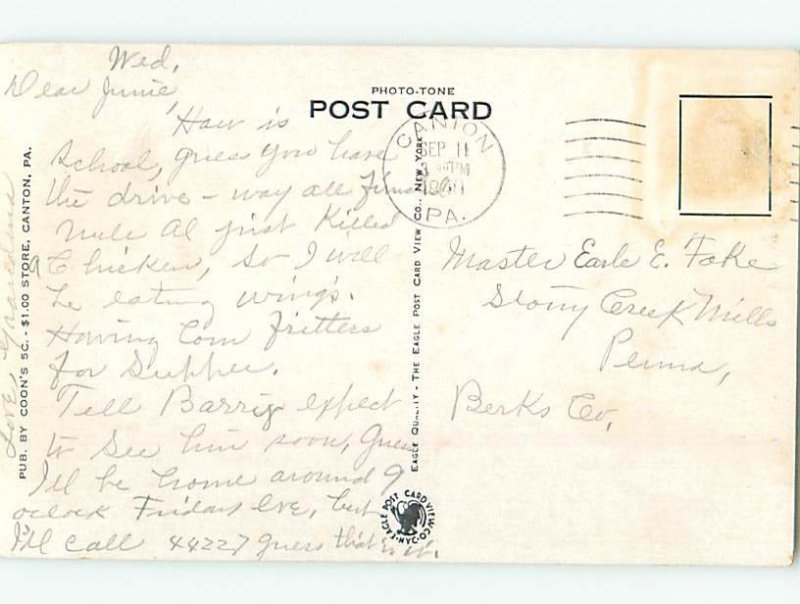 Wed,
Dear Junie,
How is
School, guess you have
the drive-way all
Uncle Al just Killed
a Chicken, so I will
be eating wings.
Having Corn Fritters
for Supper.
Tell Barry expect
to see him soon, Guess
I'll be home around 9
oclock Friday Eve, but
I'll call 44227 guess that is it.
Love, Grandma
PUB. BY COON'S 5C. - $1.00 STORE, CANTON, PA.
PHOTO-TONE
POST CARD
CANTON
SEP 11
PM
PA.
EAGLE QUALITY - THE EAGLE POST CARD VIEW CO., NEW YORK
EAGLE POST CARD VIEW CO.
Master Earle E. Fake
Stony Creek Mills
Penna,
Berks Co,